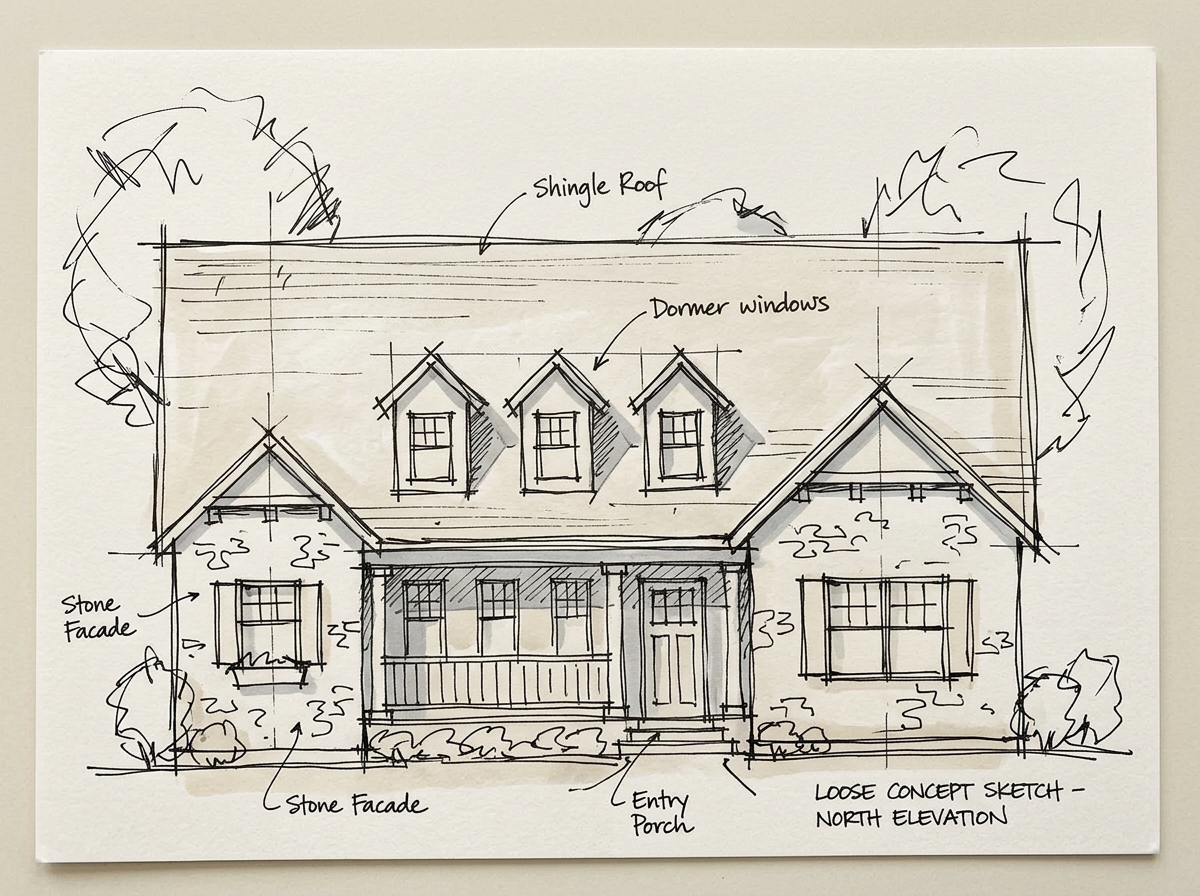 Shingle Roof
Dormer windows
Stone
Facade
Stone Facade
Entry
Porch
LOOSE CONCEPT SKETCH –
NORTH ELEVATION